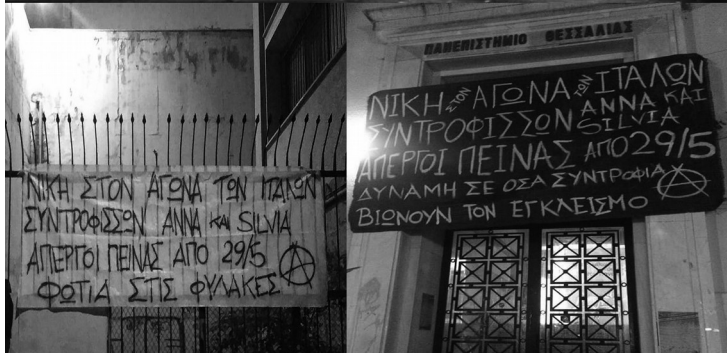 ΝΙΚΗ ΣΤΟΝ ΑΓΩΝΑ ΤΩΝ ΙΤΑΛΩΝ
ΣΥΝΤΡΟΦΙΣΣΩΝ ΑΝΝΑ ΚΑΙ SILVIA
ΑΠΕΡΓΟΙ ΠΕΙΝΑΣ ΑΠΟ 29/5
ΦΩΤΙΑ ΣΤΙΣ ΦΥΛΑΚΕΣ
ΠΑΝΕΠΙΣΤΗΜΙΟ ΘΕΣΣΑΛΙΑΣ
ΝΙΚΗ ΣΤΟΝ ΑΓΩΝΑ ΤΩΝ ΙΤΑΛΩΝ
ΣΥΝΤΡΟΦΙΣΣΩΝ ΑΝΝΑ ΚΑΙ SILVIA
ΑΠΕΡΓΟΙ ΠΕΙΝΑΣ ΑΠΟ 29/5
ΔΥΝΑΜΗ ΣΕ ΟΣΑ ΣΥΝΤΡΟΦΙΑ
ΒΙΩΝΟΥΝ ΤΟΝ ΕΓΚΛΕΙΣΜΟ